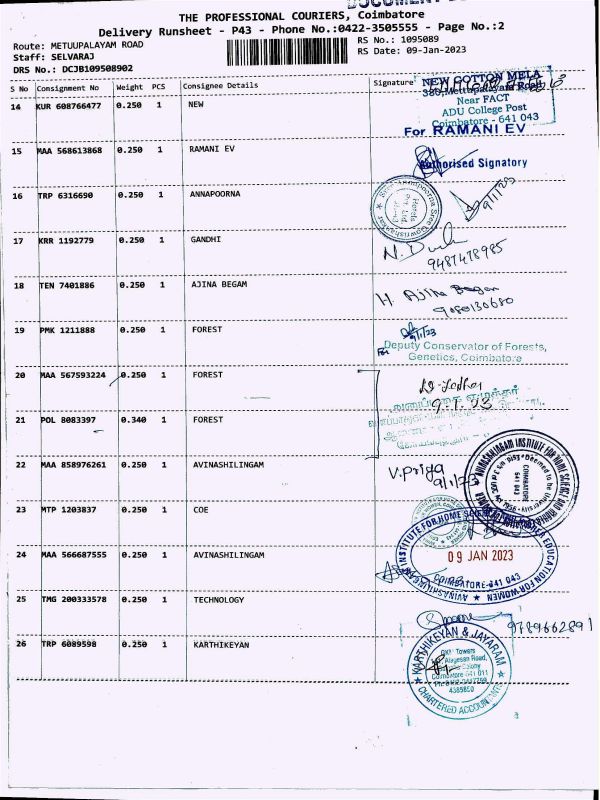 THE PROFESSIONAL COURIERS, Coimbatore
Delivery Runsheet - P43 - Phone No.:0422-3505555 - Page No.:2
Route: METUUPALAYAM ROAD
Staff: SELVARAJ
DRS No.: DCJB109508902
RS No.: 1095089
RS Date: 09-Jan-2023
S No Consignment No Weight PCS Consignee Details Signature
14 KUR 608766477 0.250 1 NEW
NEW COTTON MELA
Near FACT
ADU College Post
Coimbatore - 641 043
For RAMANI EV
15 MAA 568613868 0.250 1 RAMANI EV
Authorised Signatory
16 TRP 6316690 0.250 1 ANNAPOORNA
9/1/23
17 KRR 1192779 0.250 1 GANDHI
9487478985
18 TEN 7401886 0.250 1 AJINA BEGAM
H. Ajina Begam
9080130680
19 PMK 1211888 0.250 1 FOREST
9/1/23
For Deputy Conservator of Forests,
Genetics, Coimbatore
20 MAA 567593224 0.250 1 FOREST
9.1.23
21 POL 8083397 0.340 1 FOREST
22 MAA 858976261 0.250 1 AVINASHILINGAM
V.priya
9/1/23
COIMBATORE
641 043
23 MTP 1203837 0.250 1 COE
24 MAA 566687555 0.250 1 AVINASHILINGAM
09 JAN 2023
COIMBATORE-641 043
AVINASHILINGAM INSTITUTE FOR HOME SCIENCE
EDUCATION FOR WOMEN
25 TMG 200333578 0.250 1 TECHNOLOGY
9789662891
26 TRP 6089598 0.250 1 KARTHIKEYAN
KARTHIKEYAN & JAYARAM
Towers
Alagesan Road,
Colony
Coimbatore 641 011
4385850
CHARTERED ACCOUNTANTS